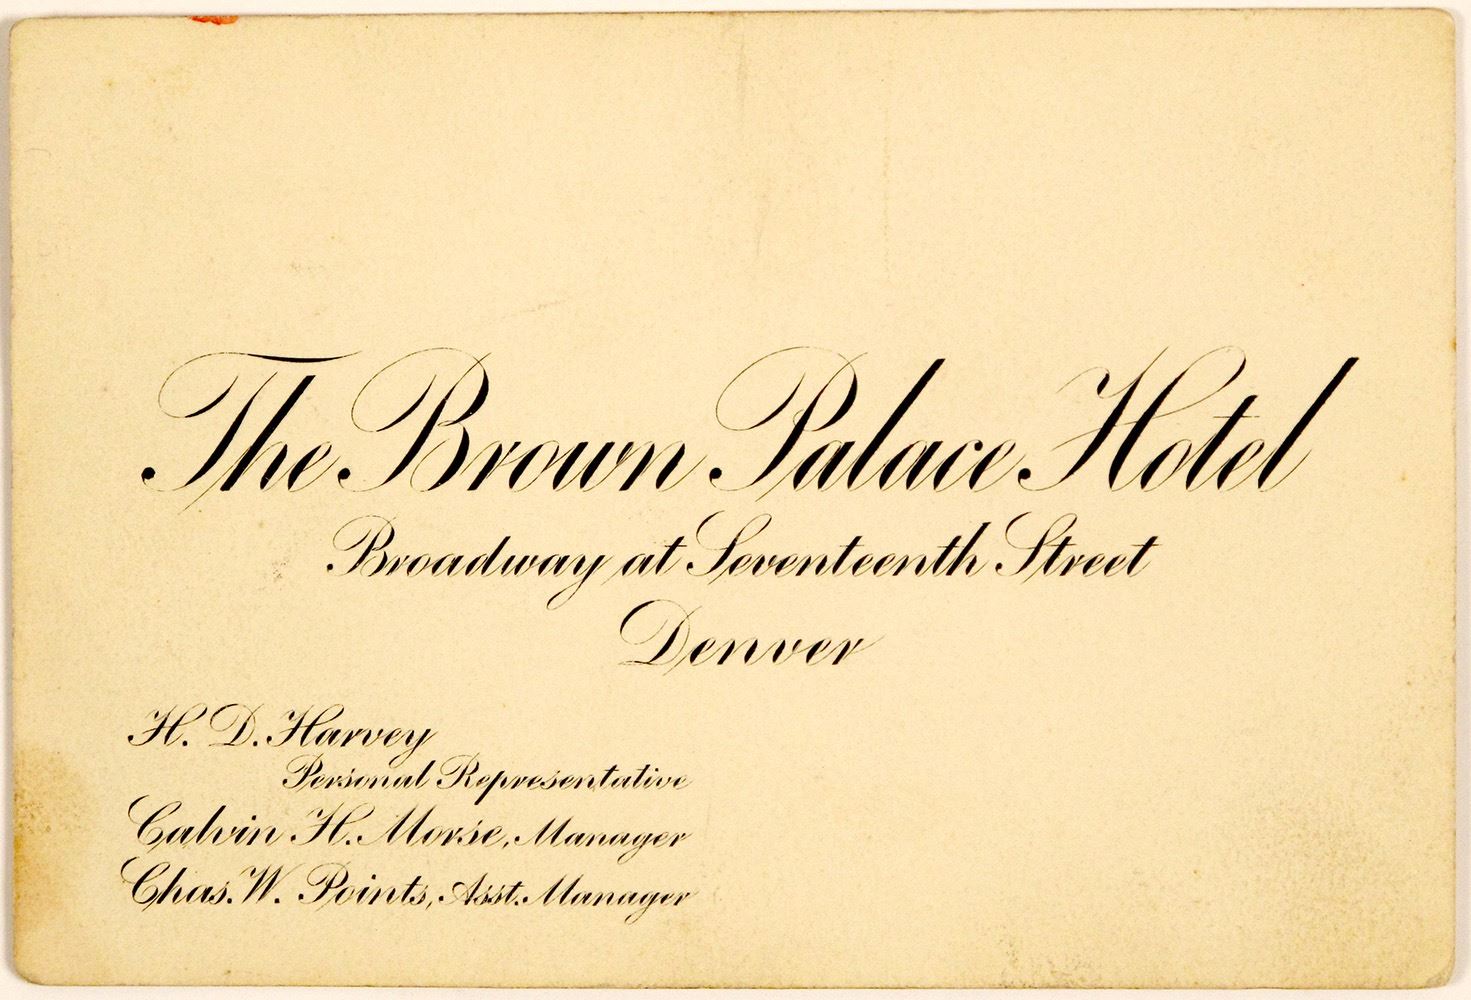 The Brown Palace Hotel
Broadway at Seventeenth Street
Denver
H. D. Harvey
Personal Representative
Calvin H. Morse, Manager
Chas. W. Points, Asst. Manager